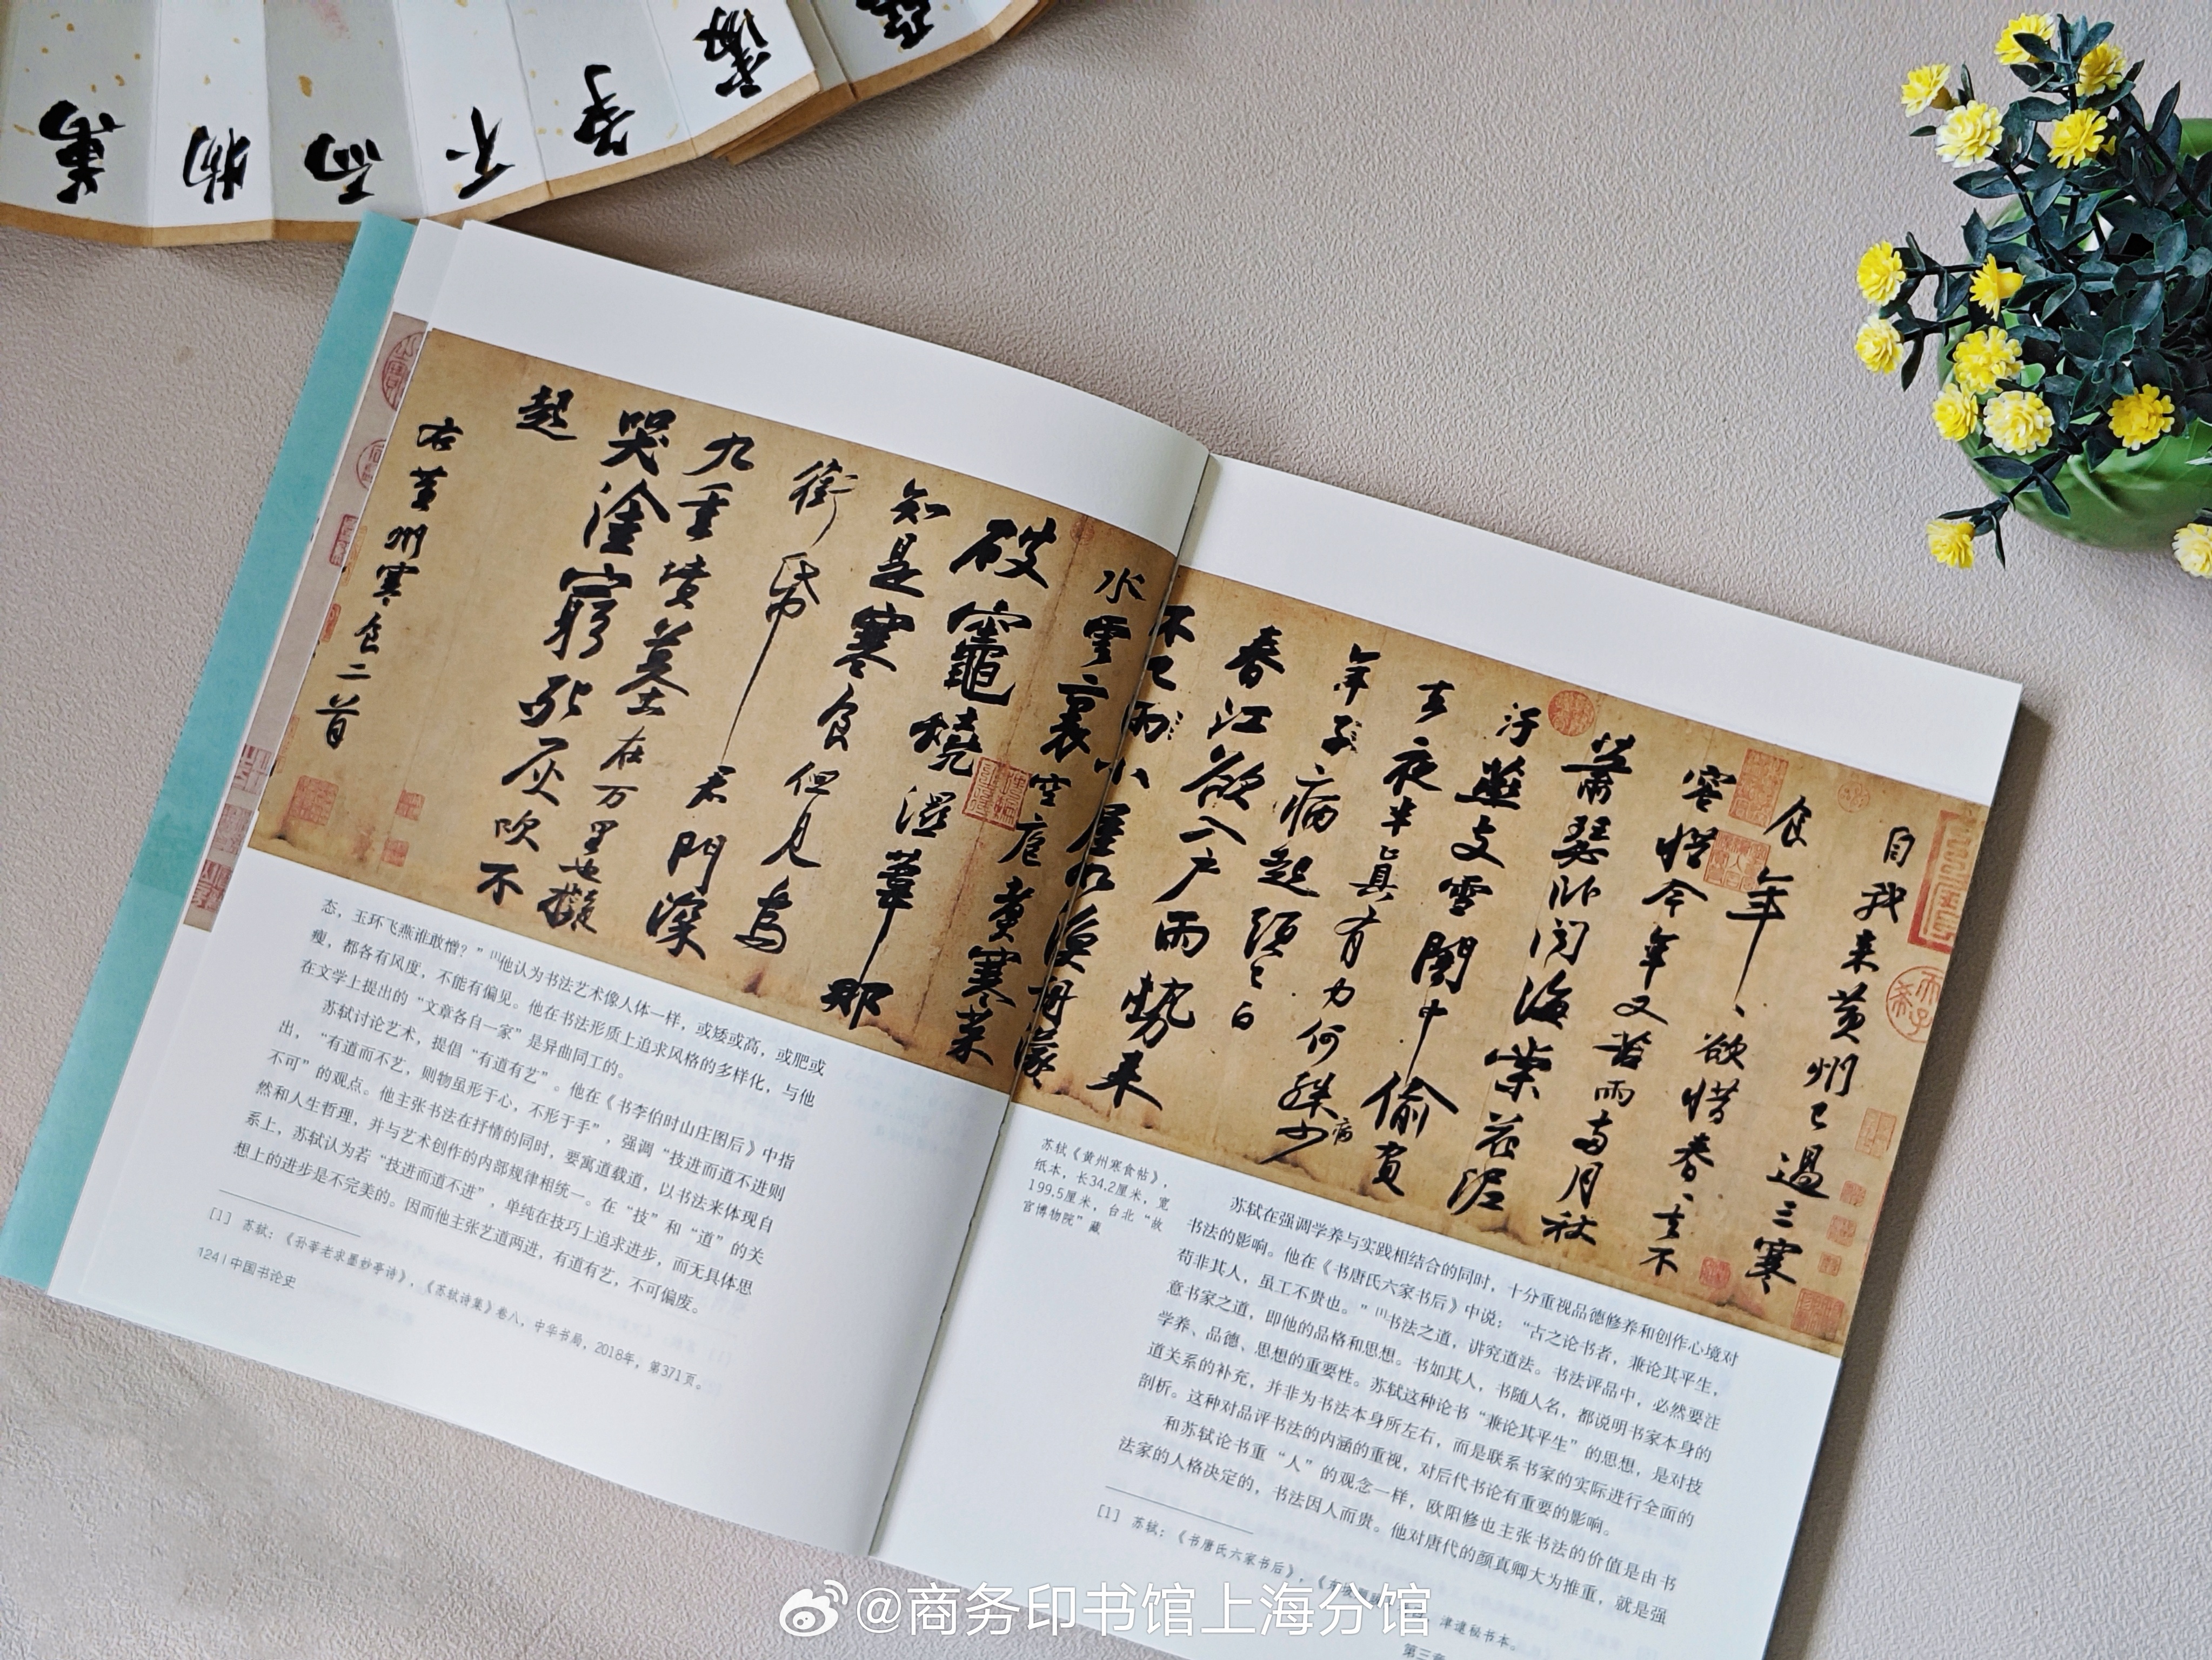 萬物而不爭
自我来黄州已過三寒
食年〻欲惜春〻去不
容惜今年又苦雨兩月秋
蕭瑟卧聞海棠花泥
汙燕支雪闇中偷負
去夜半真有力何殊少病
年子病起須已白
春江欲入户雨勢来
不已雨小屋如漁舟濛〻
水雲裏空庖煮寒菜
破竈燒濕葦那
知是寒食但見烏
銜帋君門深
九重墳墓在万里也擬
哭塗窮死灰吹不
起
右黄州寒食二首
态，玉环飞燕谁敢憎？”[1]他认为书法艺术像人体一样，或矮或高，或肥或
瘦，都各有风度，不能有偏见。他在书法形质上追求风格的多样化，与他
在文学上提出的“文章各自一家”是异曲同工的。
苏轼讨论艺术，提倡“有道有艺”。他在《书李伯时山庄图后》中指
出，“有道而不艺，则物虽形于心，不形于手”，强调“技进而道不进则
不可”的观点。他主张书法在抒情的同时，要寓道载道，以书法来体现自
然和人生哲理，并与艺术创作的内部规律相统一。在“技”和“道”的关
系上，苏轼认为若“技进而道不进”，单纯在技巧上追求进步，而无具体思
想上的进步是不完美的。因而他主张艺道两进，有道有艺，不可偏废。
[1] 苏轼：《孙莘老求墨妙亭诗》，《苏轼诗集》卷八，中华书局，2018年，第371页。
124 | 中国书论史
苏轼《黄州寒食帖》，
纸本，长34.2厘米，宽
199.5厘米，台北“故
宫博物院”藏
苏轼在强调学养与实践相结合的同时，十分重视品德修养和创作心境对
书法的影响。他在《书唐氏六家书后》中说：“古之论书者，兼论其平生，
苟非其人，虽工不贵也。”[1]书法之道，讲究道法。书法评品中，必然要注
意书家之道，即他的品格和思想。书如其人，书随人名，都说明书家本身的
学养、品德、思想的重要性。苏轼这种论书“兼论其平生”的思想，是对技
道关系的补充，并非为书法本身所左右，而是联系书家的实际进行全面的
剖析。这种对品评书法的内涵的重视，对后代书论有重要的影响。
和苏轼论书重“人”的观念一样，欧阳修也主张书法的价值是由书
法家的人格决定的，书法因人而贵。他对唐代的颜真卿大为推重，就是强
[1] 苏轼：《书唐氏六家书后》，《东坡题跋》，津逮秘书本。
第三章
@商务印书馆上海分馆